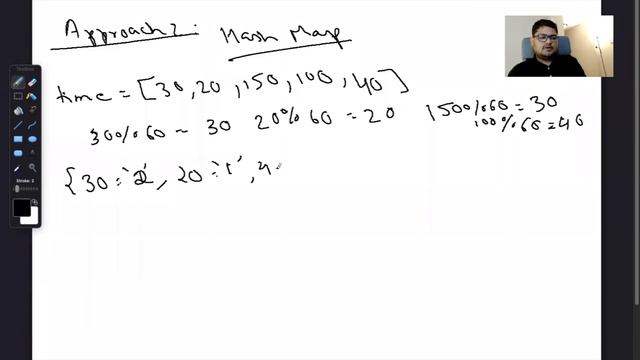 Approach 2: Hash Map
time = [30, 20, 150, 100, 40]
30%60 = 30 20%60 = 20 150%60 = 30
100%60 = 40
{30: '2', 20: '1', 4
Stroke: 2